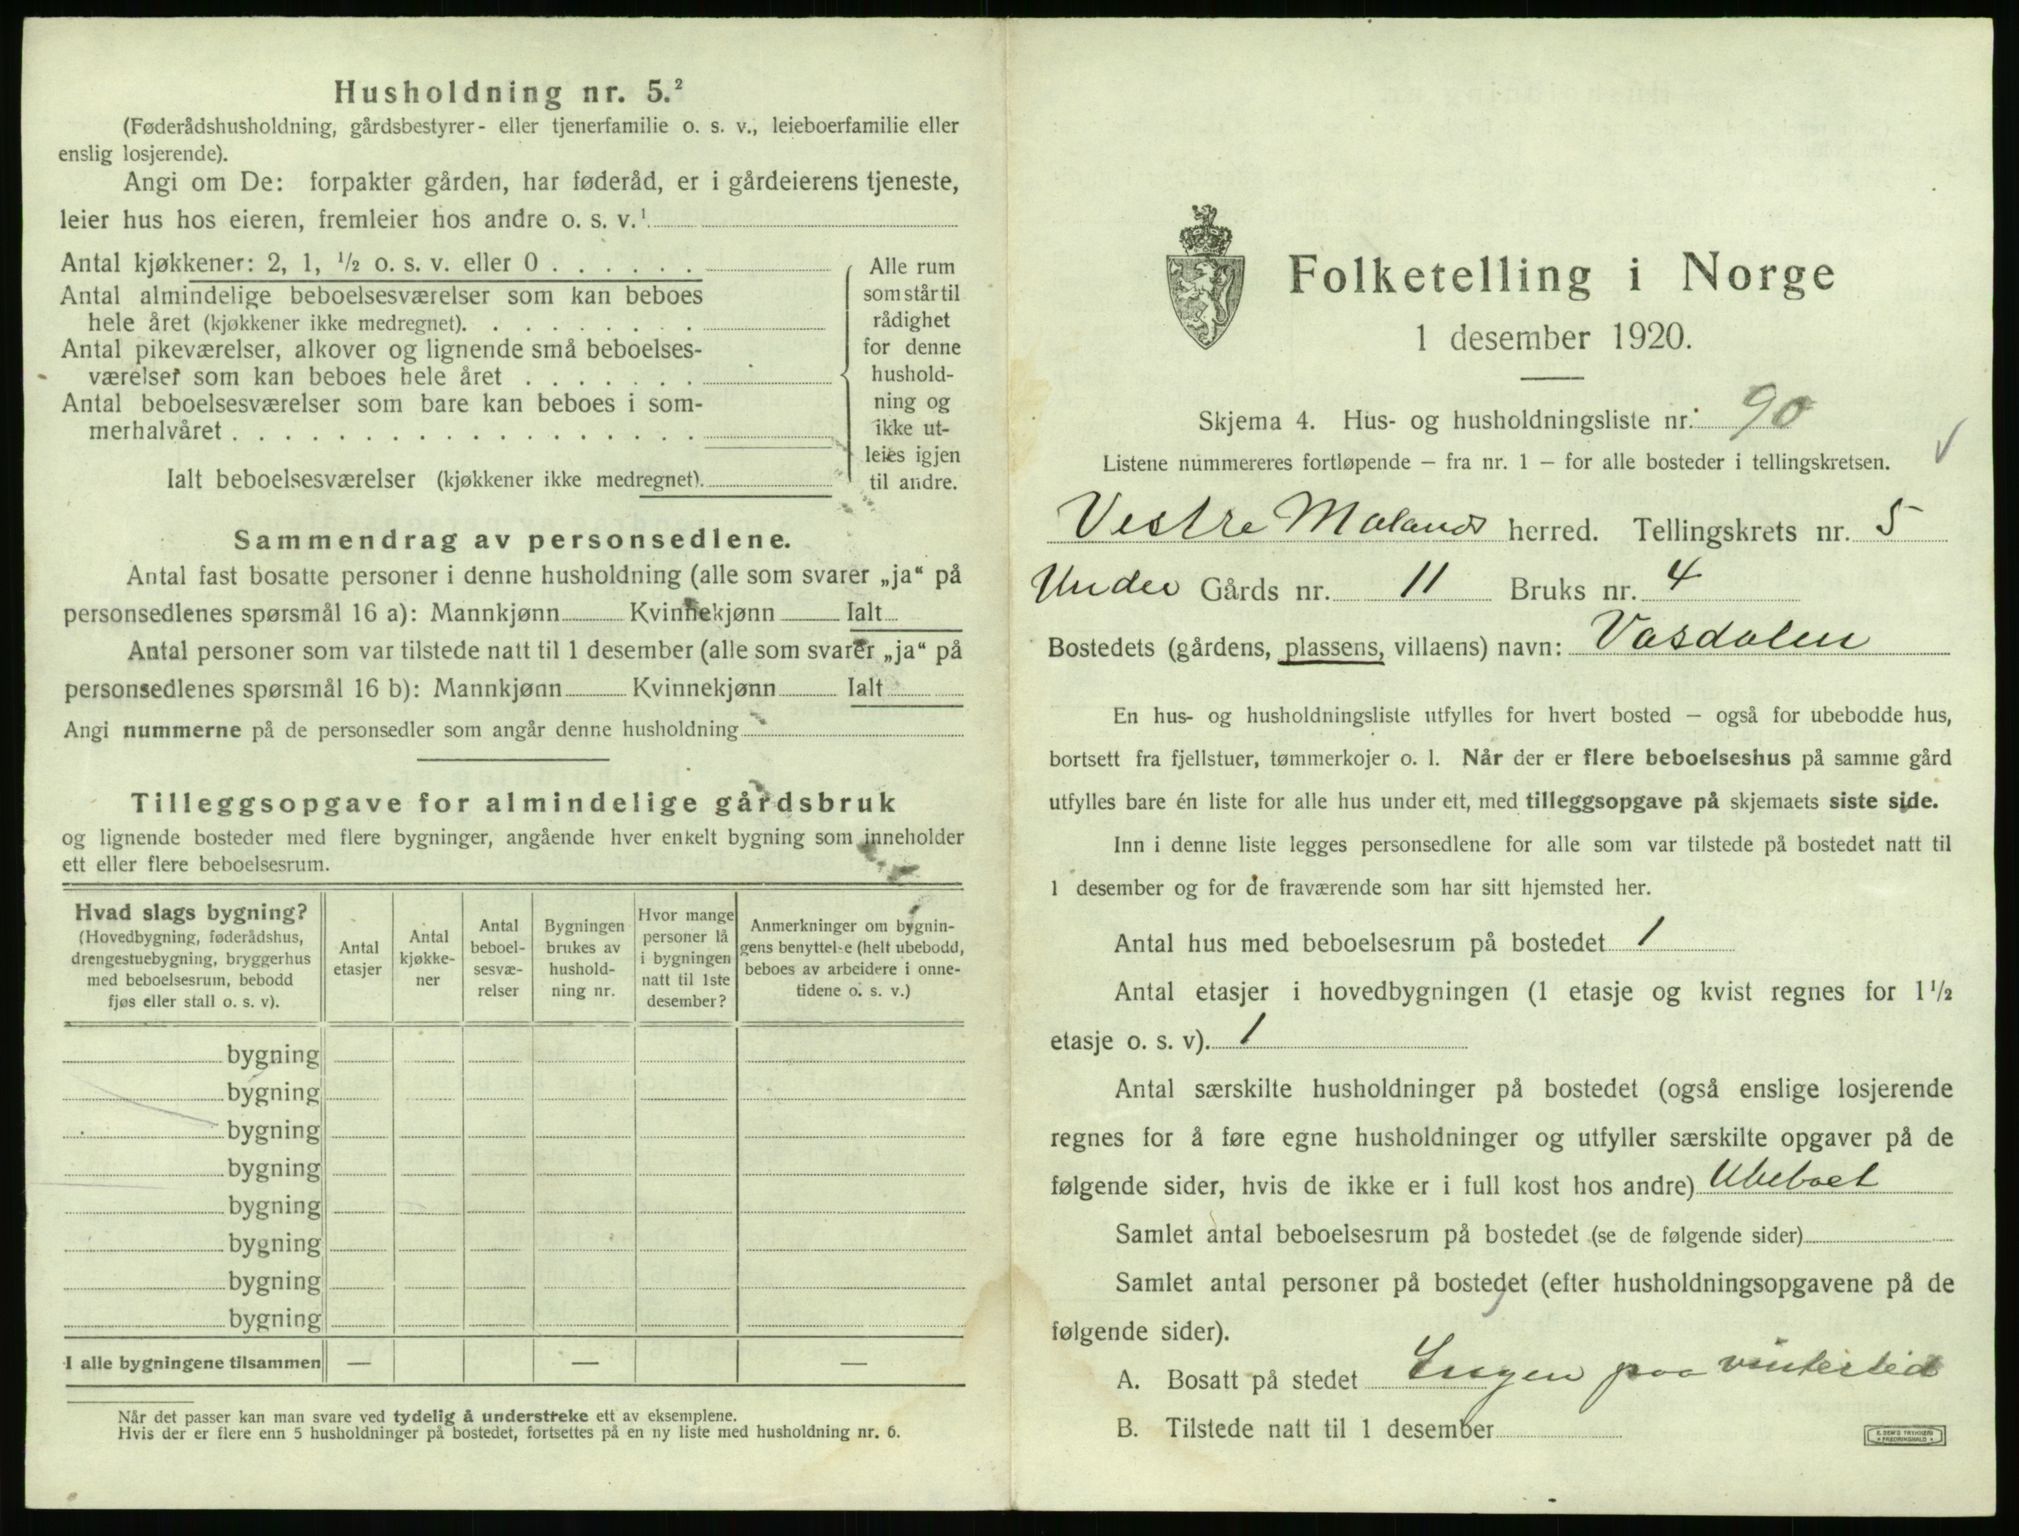 Husholdning nr. 5.²
(Føderådshusholdning, gårdsbestyrer- eller tjenerfamilie o. s. v., leieboerfamilie eller
enslig losjerende).
Angi om De: forpakter gården, har føderåd, er i gårdeierens tjeneste,
leier hus hos eieren, fremleier hos andre o. s. v.¹
Antal kjøkkener: 2, 1, ½ o. s. v. eller 0 . . . . . .
Antal almindelige beboelsesværelser som kan beboes
hele året (kjøkkener ikke medregnet). . . . . . . . .
Antal pikeværelser, alkover og lignende små beboelses-
værelser som kan beboes hele året . . . . . . .
Antal beboelsesværelser som bare kan beboes i som-
merhalvåret . . . . . . . . . . . . . . . . . .
Ialt beboelsesværelser (kjøkkener ikke medregnet).
Alle rum
som står til
rådighet
for denne
hushold-
ning og
ikke ut-
leies igjen
til andre.
Sammendrag av personsedlene.
Antal fast bosatte personer i denne husholdning (alle som svarer „ja“ på
personsedlenes spørsmål 16 a): Mannkjønn Kvinnekjønn Ialt
Antal personer som var tilstede natt til 1 desember (alle som svarer „ja“ på
personsedlenes spørsmål 16 b): Mannkjønn Kvinnekjønn Ialt
Angi nummerne på de personsedler som angår denne husholdning
Tilleggsopgave for almindelige gårdsbruk
og lignende bosteder med flere bygninger, angående hver enkelt bygning som inneholder
ett eller flere beboelsesrum.
Hvad slags bygning?
(Hovedbygning, føderådshus,
drengestuebygning, bryggerhus
med beboelsesrum, bebodd
fjøs eller stall o. s. v).
Antal
etasjer
Antal
kjøkke-
ner
Antal
beboel-
sesvæ-
relser
Bygningen
brukes av
hushold-
ning nr.
Hvor mange
personer lå
i bygningen
natt til 1ste
desember?
Anmerkninger om bygnin-
gens benyttelse (helt ubebodd,
beboes av arbeidere i onne-
tidene o. s. v.)
bygning
bygning
bygning
bygning
bygning
bygning
bygning
bygning
I alle bygningene tilsammen — — —
Når det passer kan man svare ved tydelig å understreke ett av eksemplene.
Hvis der er flere enn 5 husholdninger på bostedet, fortsettes på en ny liste med husholdning nr. 6.
Folketelling i Norge
1 desember 1920.
Skjema 4. Hus- og husholdningsliste nr. 90
Listene nummereres fortløpende – fra nr. 1 – for alle bosteder i tellingskretsen.
Vestre Molands herred. Tellingskrets nr. 5
Under Gårds nr. 11 Bruks nr. 4
Bostedets (gårdens, plassens, villaens) navn: Vasdalen
En hus- og husholdningsliste utfylles for hvert bosted – også for ubebodde hus,
bortsett fra fjellstuer, tømmerkojer o. l. Når der er flere beboelseshus på samme gård
utfylles bare én liste for alle hus under ett, med tilleggsopgave på skjemaets siste side.
Inn i denne liste legges personsedlene for alle som var tilstede på bostedet natt til
1 desember og for de fraværende som har sitt hjemsted her.
Antal hus med beboelsesrum på bostedet 1
Antal etasjer i hovedbygningen (1 etasje og kvist regnes for 1½
etasje o. s. v). 1
Antal særskilte husholdninger på bostedet (også enslige losjerende
regnes for å føre egne husholdninger og utfyller særskilte opgaver på de
følgende sider, hvis de ikke er i full kost hos andre) Ubeboet
Samlet antal beboelsesrum på bostedet (se de følgende sider)
Samlet antal personer på bostedet (efter husholdningsopgavene på de
følgende sider).
A. Bosatt på stedet Ingen paa vintertid
B. Tilstede natt til 1 desember
E. SEM'S TRYKKERI
FREDRIKSHALD